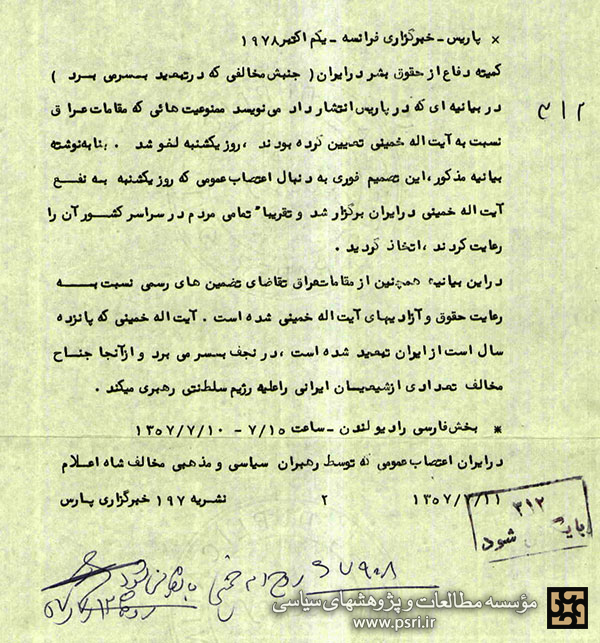 × پاریس - خبرگزاری فرانسه - یکم اکتبر ۱۹۷۸
کمیته دفاع از حقوق بشر در ایران ( جنبش مخالفی که در تبعید بسر می برد )
در بیانیه ای که در پاریس انتشار داد می نویسد ممنوعیت هائی که مقامات عراق
نسبت به آیت اله خمینی تعیین کرده بودند ، روز یکشنبه لغو شد . بنا به نوشته
بیانیه مذکور ، این تصمیم فوری به دنبال اعتصاب عمومی که روز یکشنبه به نفع
آیت اله خمینی در ایران برگزار شد و تقریبا" تمامی مردم در سراسر کشور آن را
رعایت کردند ، اتخاذ گردید .
در این بیانیه همچنین از مقامات عراق تقاضای تضمین های رسمی نسبت به
رعایت حقوق و آزادیهای آیت اله خمینی شده است . آیت اله خمینی که پانزده
سال است از ایران تبعید شده است ، در نجف بسر می برد و از آنجا جناح
مخالف تعدادی از شیعیان ایرانی را علیه رژیم سلطنتی رهبری میکند .
* بخش فارسی رادیو لندن - ساعت ۷/۱۵ - ۱۳۵۷/۷/۱۰
در ایران اعتصاب عمومی که توسط رهبران سیاسی و مذهبی مخالف شاه اعلام
نشریه ۱۹۷ خبرگزاری پارس ۲ ۱۳۵۷/۷/۱۱
۳۱۲
۳۱۲
شود
مؤسسه مطالعات و پژوهشهای سیاسی
www.psri.ir